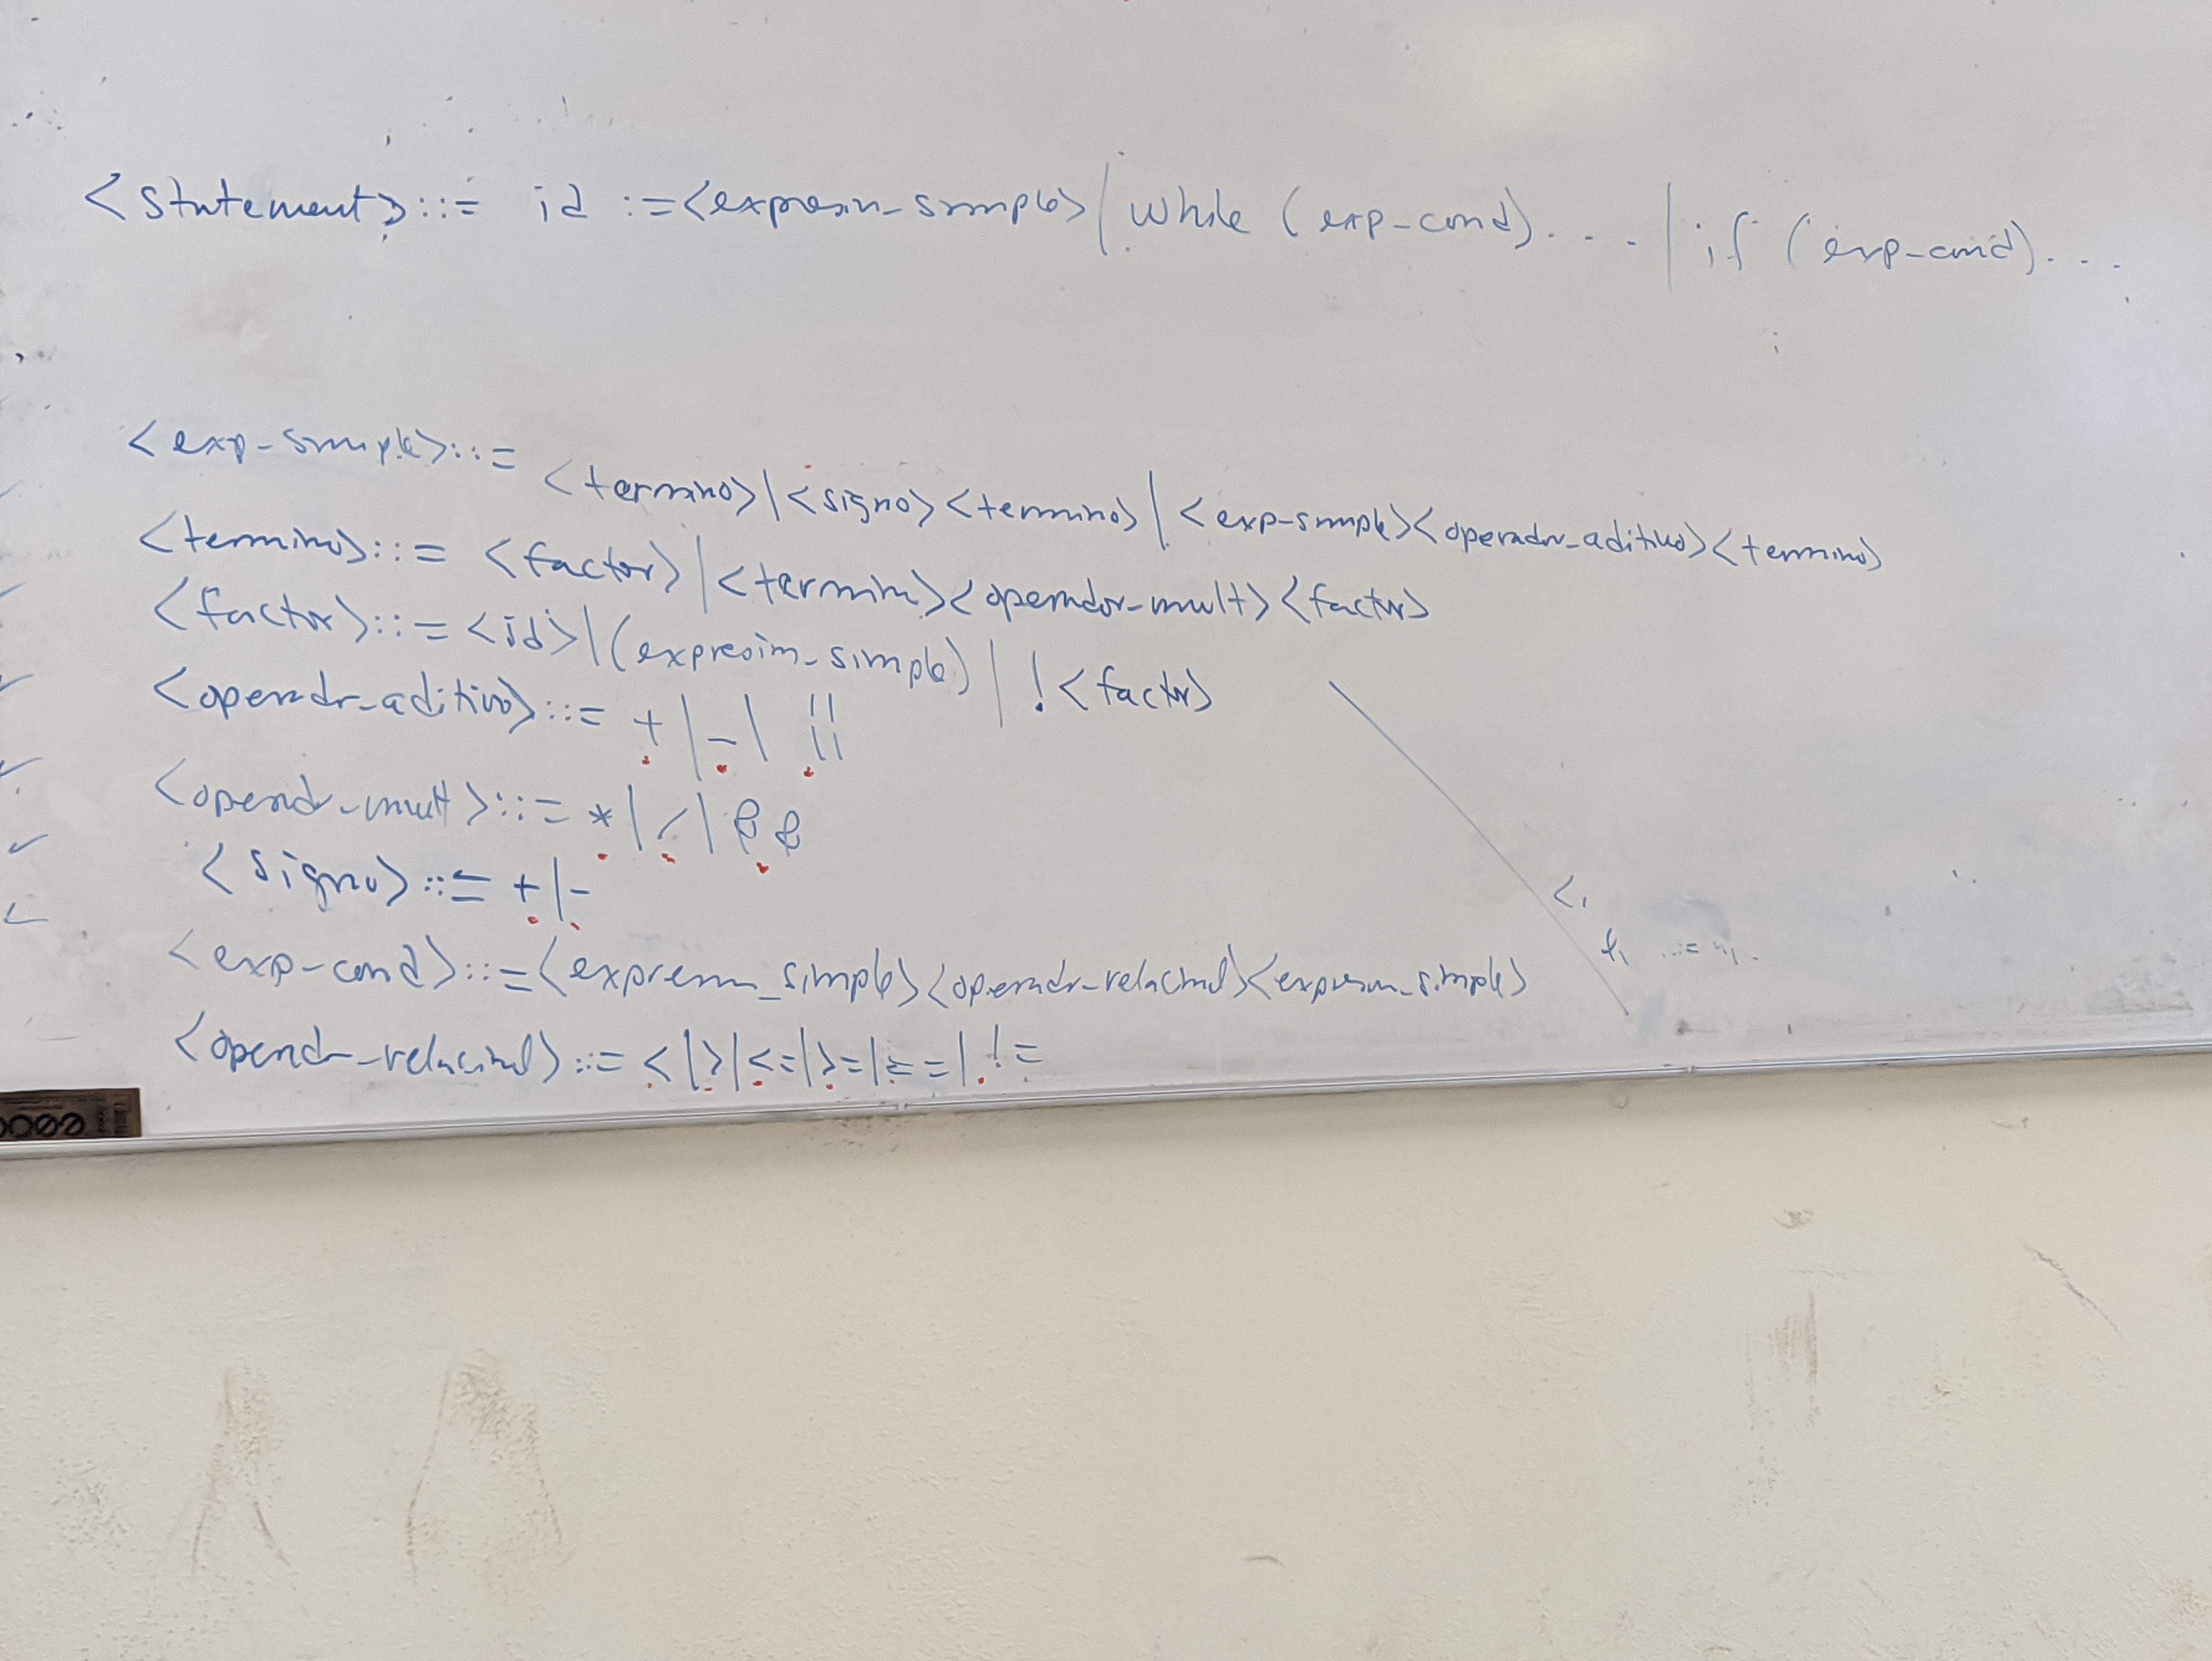 <statement>::= id :=<expresin_simple>|while (exp-cond)....|if (exp-cond)...
<exp-simple>::= <termino>|<signo><termino>|<exp-simple><operador_aditivo><termino>
<termino>::= <factor>|<termino><operador-mult><factor>
<factor>::=<id>|(expresion_simple)|!<factor>
<operador_aditivo>::= +|-| ||
<operador-mult>::= *|/|&&
<signo>::= +|-
<exp-cond>::=<expresion_simple><operador-relacional><expresion_simple>
<operador-relacional>::= <|>|<=|>=|==|!=